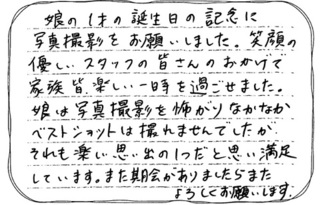 娘の1才の誕生日の記念に
写真撮影をお願いしました。笑顔の
優しいスタッフの皆さんのおかげで
家族皆、楽しい一時を過ごせました。
娘は写真撮影を怖がりなかなか
ベストショットは撮れませんでしたが
それも楽い思い出の1つだと思い満足
しています。また期会がありましたらまた
よろしくお願いします。